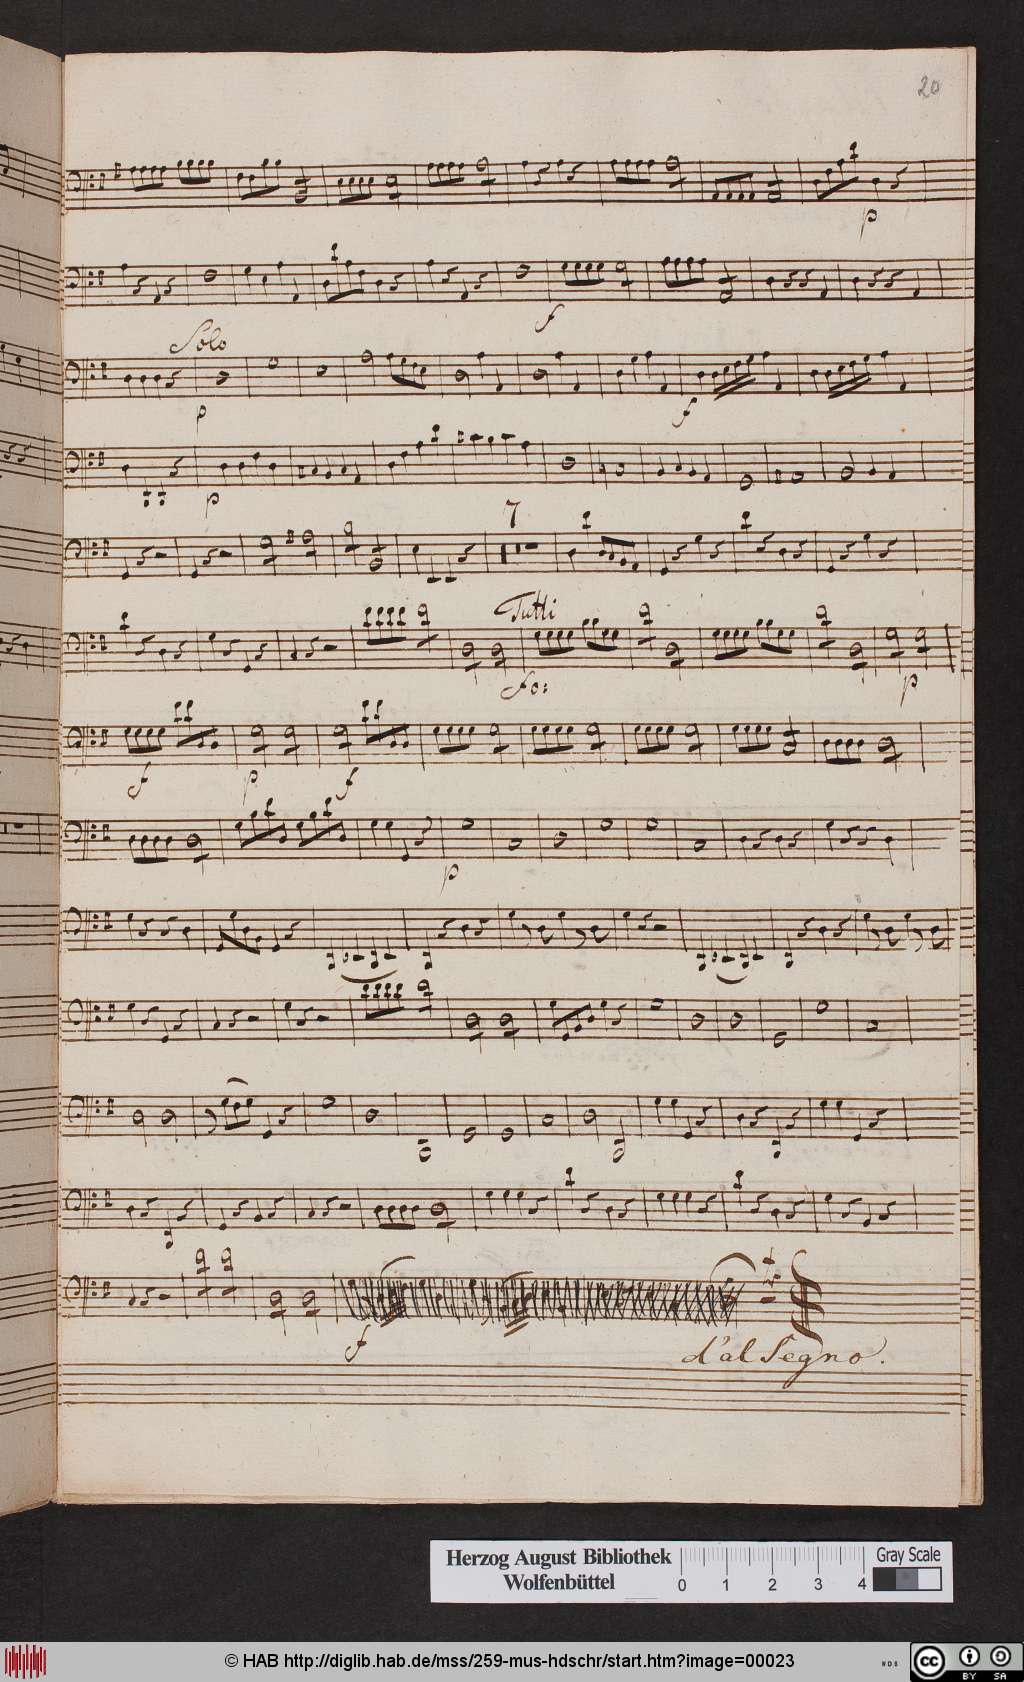 20
p
f
Solo
p
f
p
7
Tutti
fo:
p
f p f
p
f
d'al Segno.
Herzog August Bibliothek
Wolfenbüttel
0 1 2 3 4
Gray Scale
© HAB http://diglib.hab.de/mss/259-mus-hdschr/start.htm?image=00023
WDB
cc BY SA